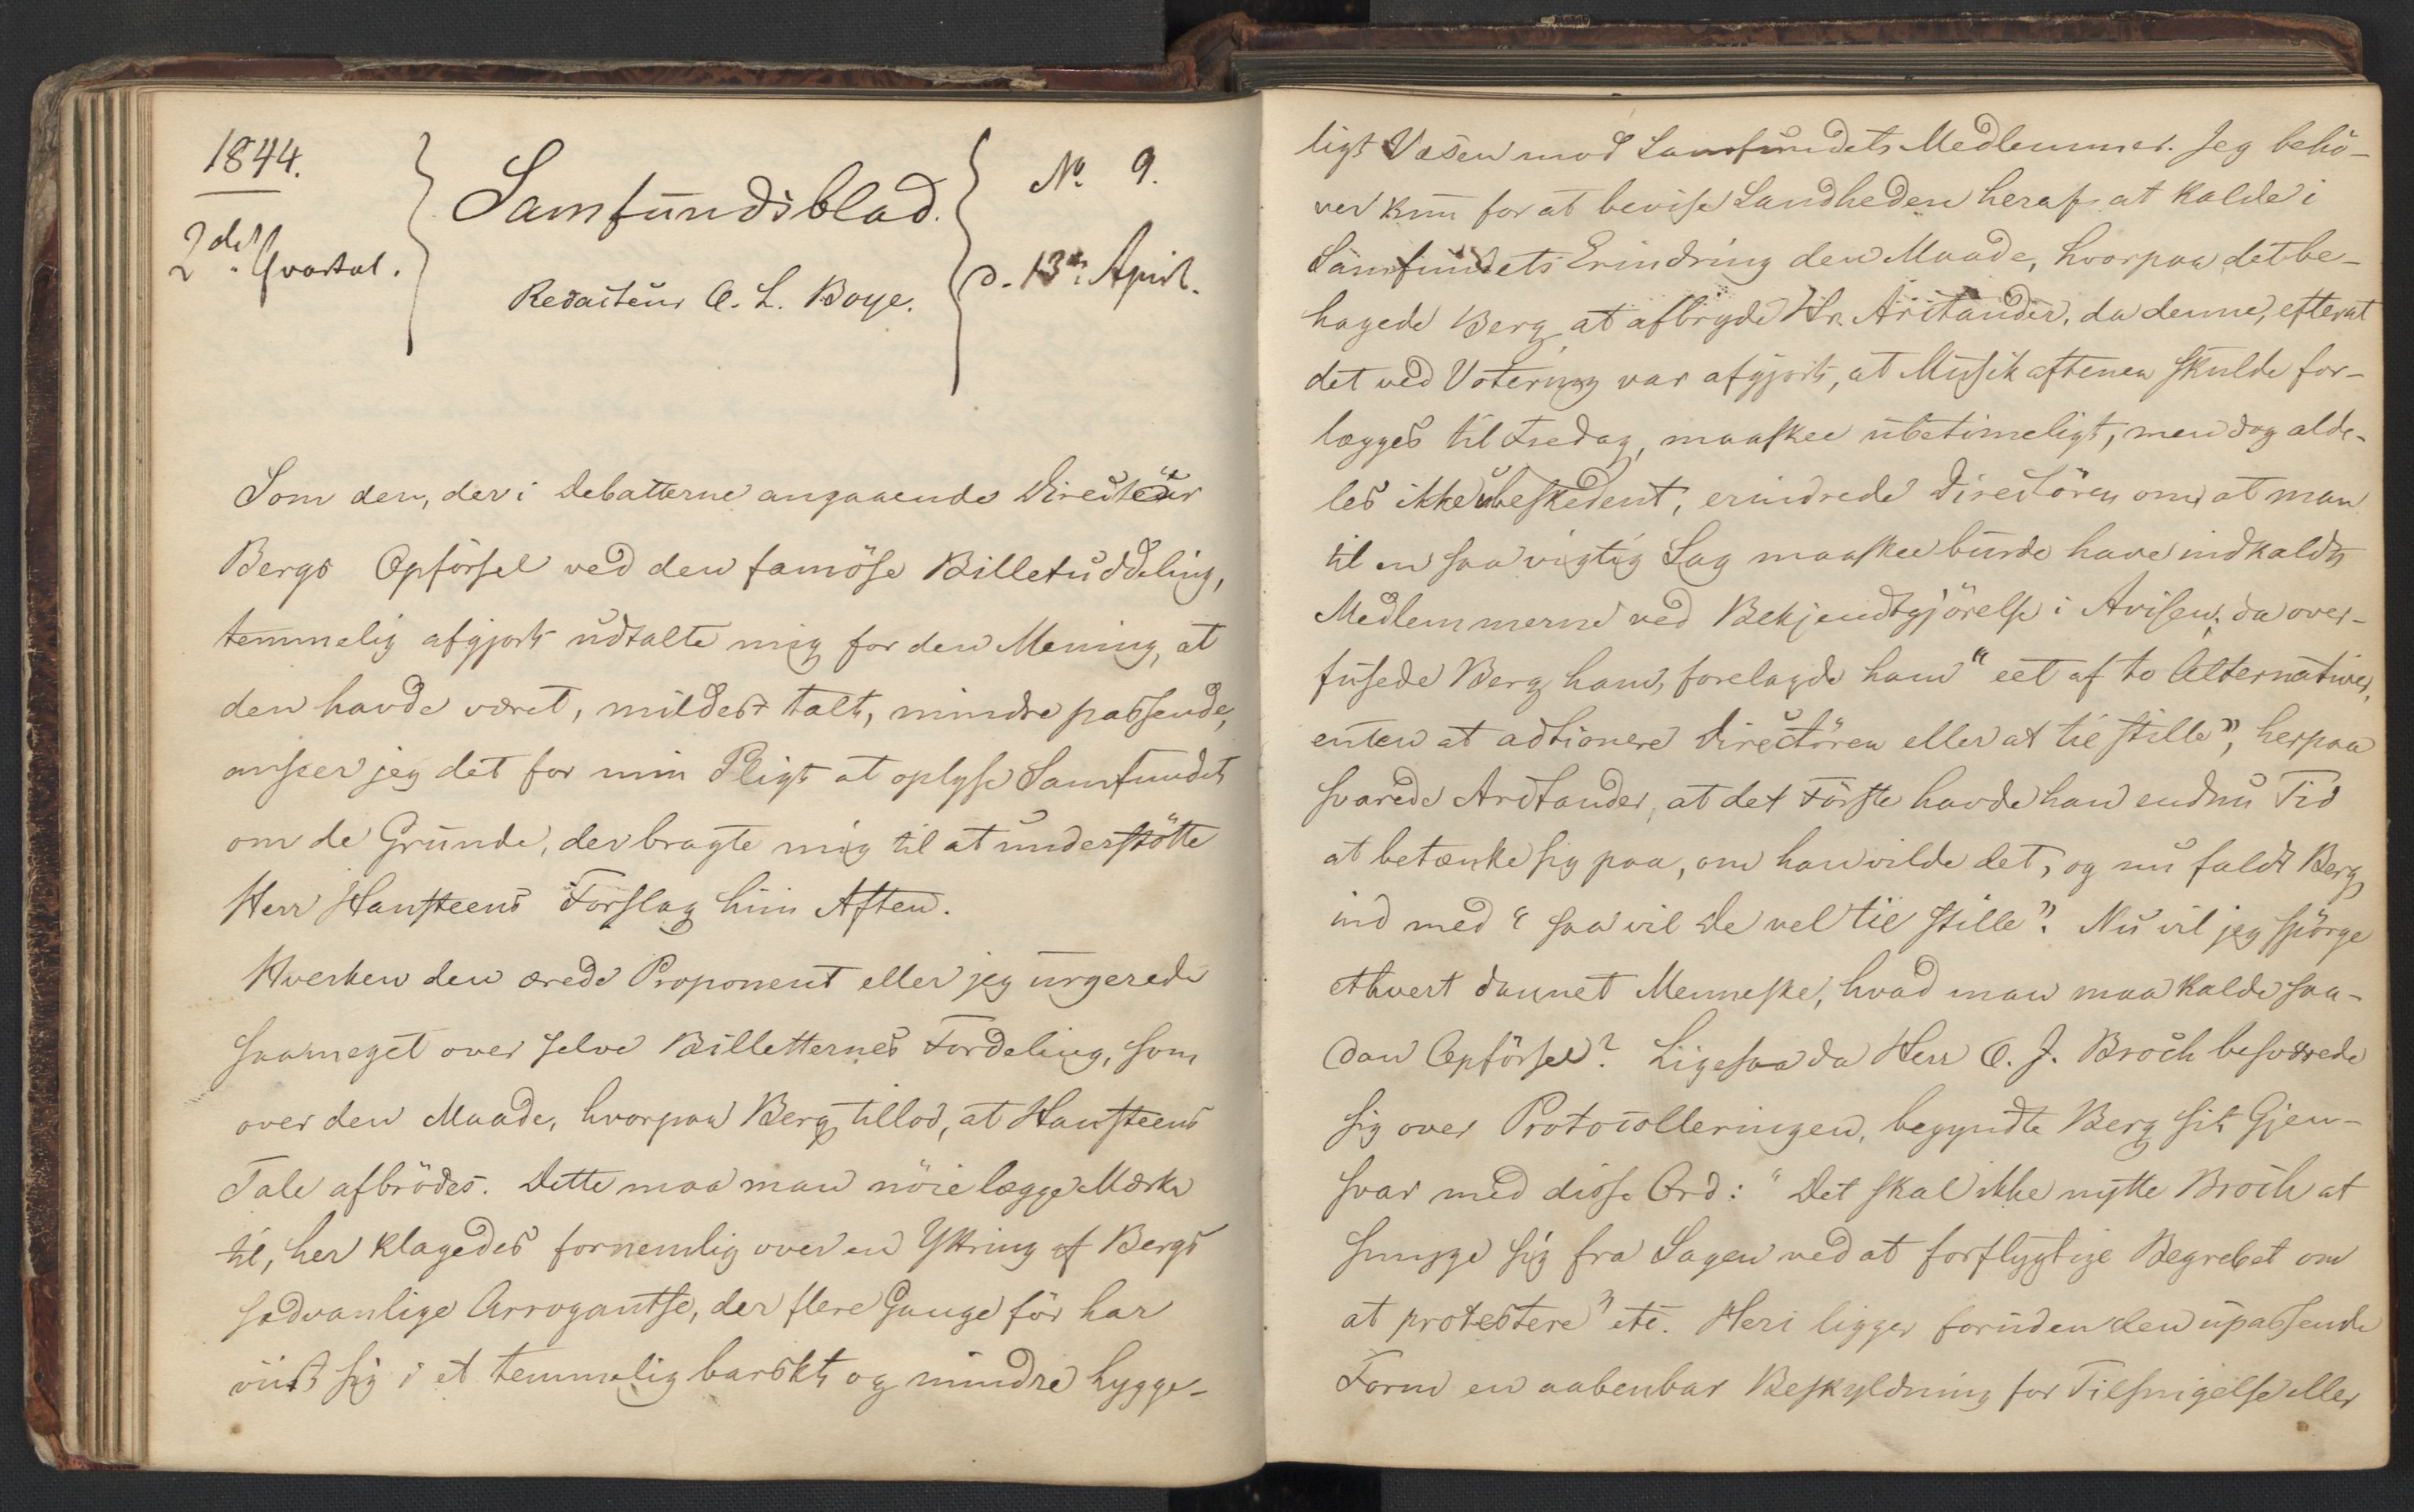 1844.
2det Qvartal.
Samfundsblad.
Redacteur O. L. Boye.
No. 9.
d. 13de April.
Som den, der i Debatterne angaaende Directeur
Bergs Opförsel ved den famöse Billetuddeling,
temmelig afgjort udtalte mig for den Mening, at
den havde været, mildest talt, mindre passende,
anseer jeg det for min Pligt at oplyse Samfundet
om de Grunde, der bragte mig til at understötte
Herr Hansteens Forslag hiin Aften.
Hverken den ærede Proponent eller jeg urgerede
saameget over selve Billetternes Fordeling, som
over den Maade, hvorpaa Berg tillod, at Hansteens
Tale afbrödes. Dette maa man nöie lægge Mærke
til, her klagedes fornemlig over en Yttring af Bergs
sædvanlige Arrogantse, der flere Gange för har
viist sig i et temmelig barskt og mindre hygge-
ligt Væsen mod Samfundets Medlemmer. Jeg behö-
ver kun for at bevise Sandheden heraf at kalde i
Samfundets Erindring den Maade, hvorpaa det be-
hagede Berg at afbryde Hr. Arctander, da denne, efterat
det ved Votering var afgjort, at Musikaftenen skulde for-
lægges til Fredag, maaskee ubetimeligt, men dog alde-
les ikke ubeskedent, erindrede Directören om, at man
til en saa vigtig Sag maaskee burde have indkaldt
Medlemmerne ved Bekjendtgjörelse i Avisen; da over-
fusede Berg ham, forelagde ham "eet af to Alternativer,
enten at actionere Directören eller at tie stille", herpaa
svarede Arctander, at det Förste havde han endnu Tid
at betænke sig paa, om han vilde det, og nu faldt Berg
ind med "saa vil De vel tie stille". Nu vil jeg spörge
ethvert dannet Menneske, hvad man maa kalde saa-
dan Opförsel? Ligesaa da Herr O. J. Broch besværede
sig over Protocolleringen, begyndte Berg sit Gjen-
svar med disse Ord: "Det skal ikke nytte Broch at
smyge sig fra Sagen ved at forflygtige Begrebet om
at protestere" etc. Heri ligger foruden den upassende
Form en aabenbar Beskyldning for Tilsnigelse eller